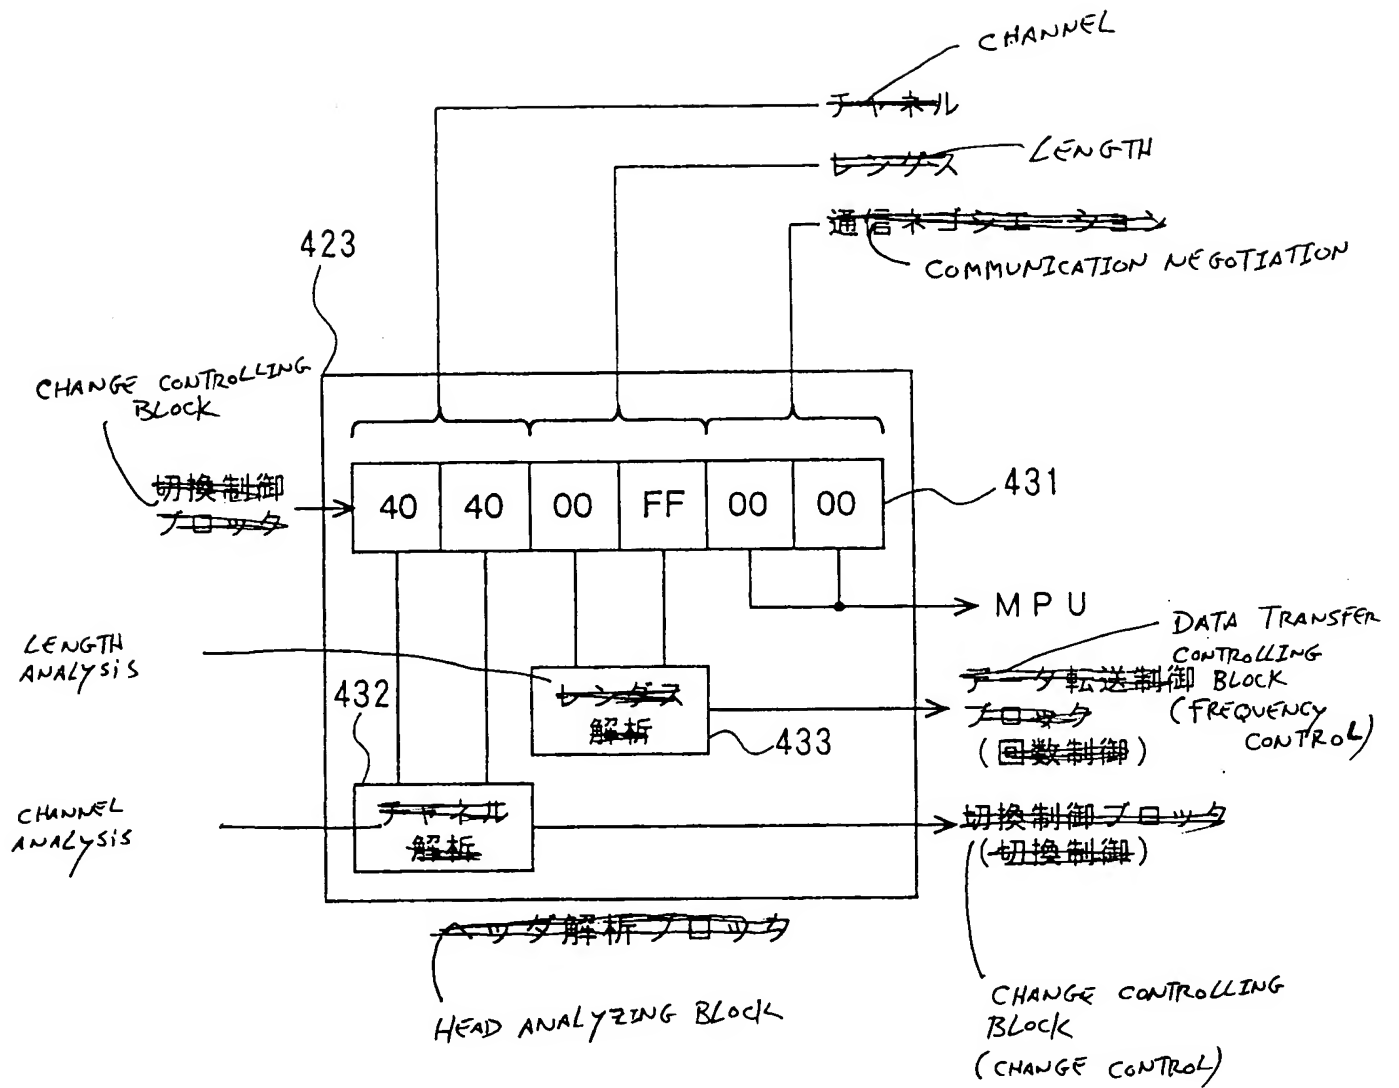 CHANNEL
チャネル
レングス
LENGTH
通信ネゴシエーション
COMMUNICATION NEGOTIATION
423
CHANGE CONTROLLING
BLOCK
切換制御
ブロック
40 40 00 FF 00 00
431
MPU
DATA TRANSFER
CONTROLLING
BLOCK
(FREQUENCY
CONTROL)
データ転送制御
ブロック
(回数制御)
LENGTH
ANALYSIS
レングス
解析
433
432
CHANNEL
ANALYSIS
チャネル
解析
切換制御ブロック
(切換制御)
ヘッダ解析ブロック
HEAD ANALYZING BLOCK
CHANGE CONTROLLING
BLOCK
(CHANGE CONTROL)